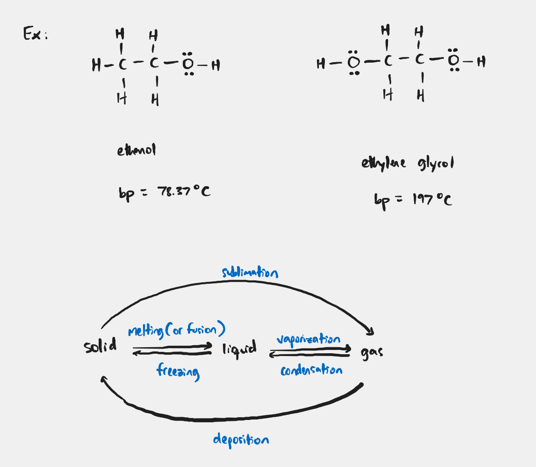 Ex:
H H
H-C-C-Ö-H
H H
ethanol
bp = 78.37°C
H H
H-Ö-C-C-Ö-H
H H
ethylene glycol
bp = 197°C
sublimation
solid
melting (or fusion)
freezing
liquid
vaporization
condensation
gas
deposition